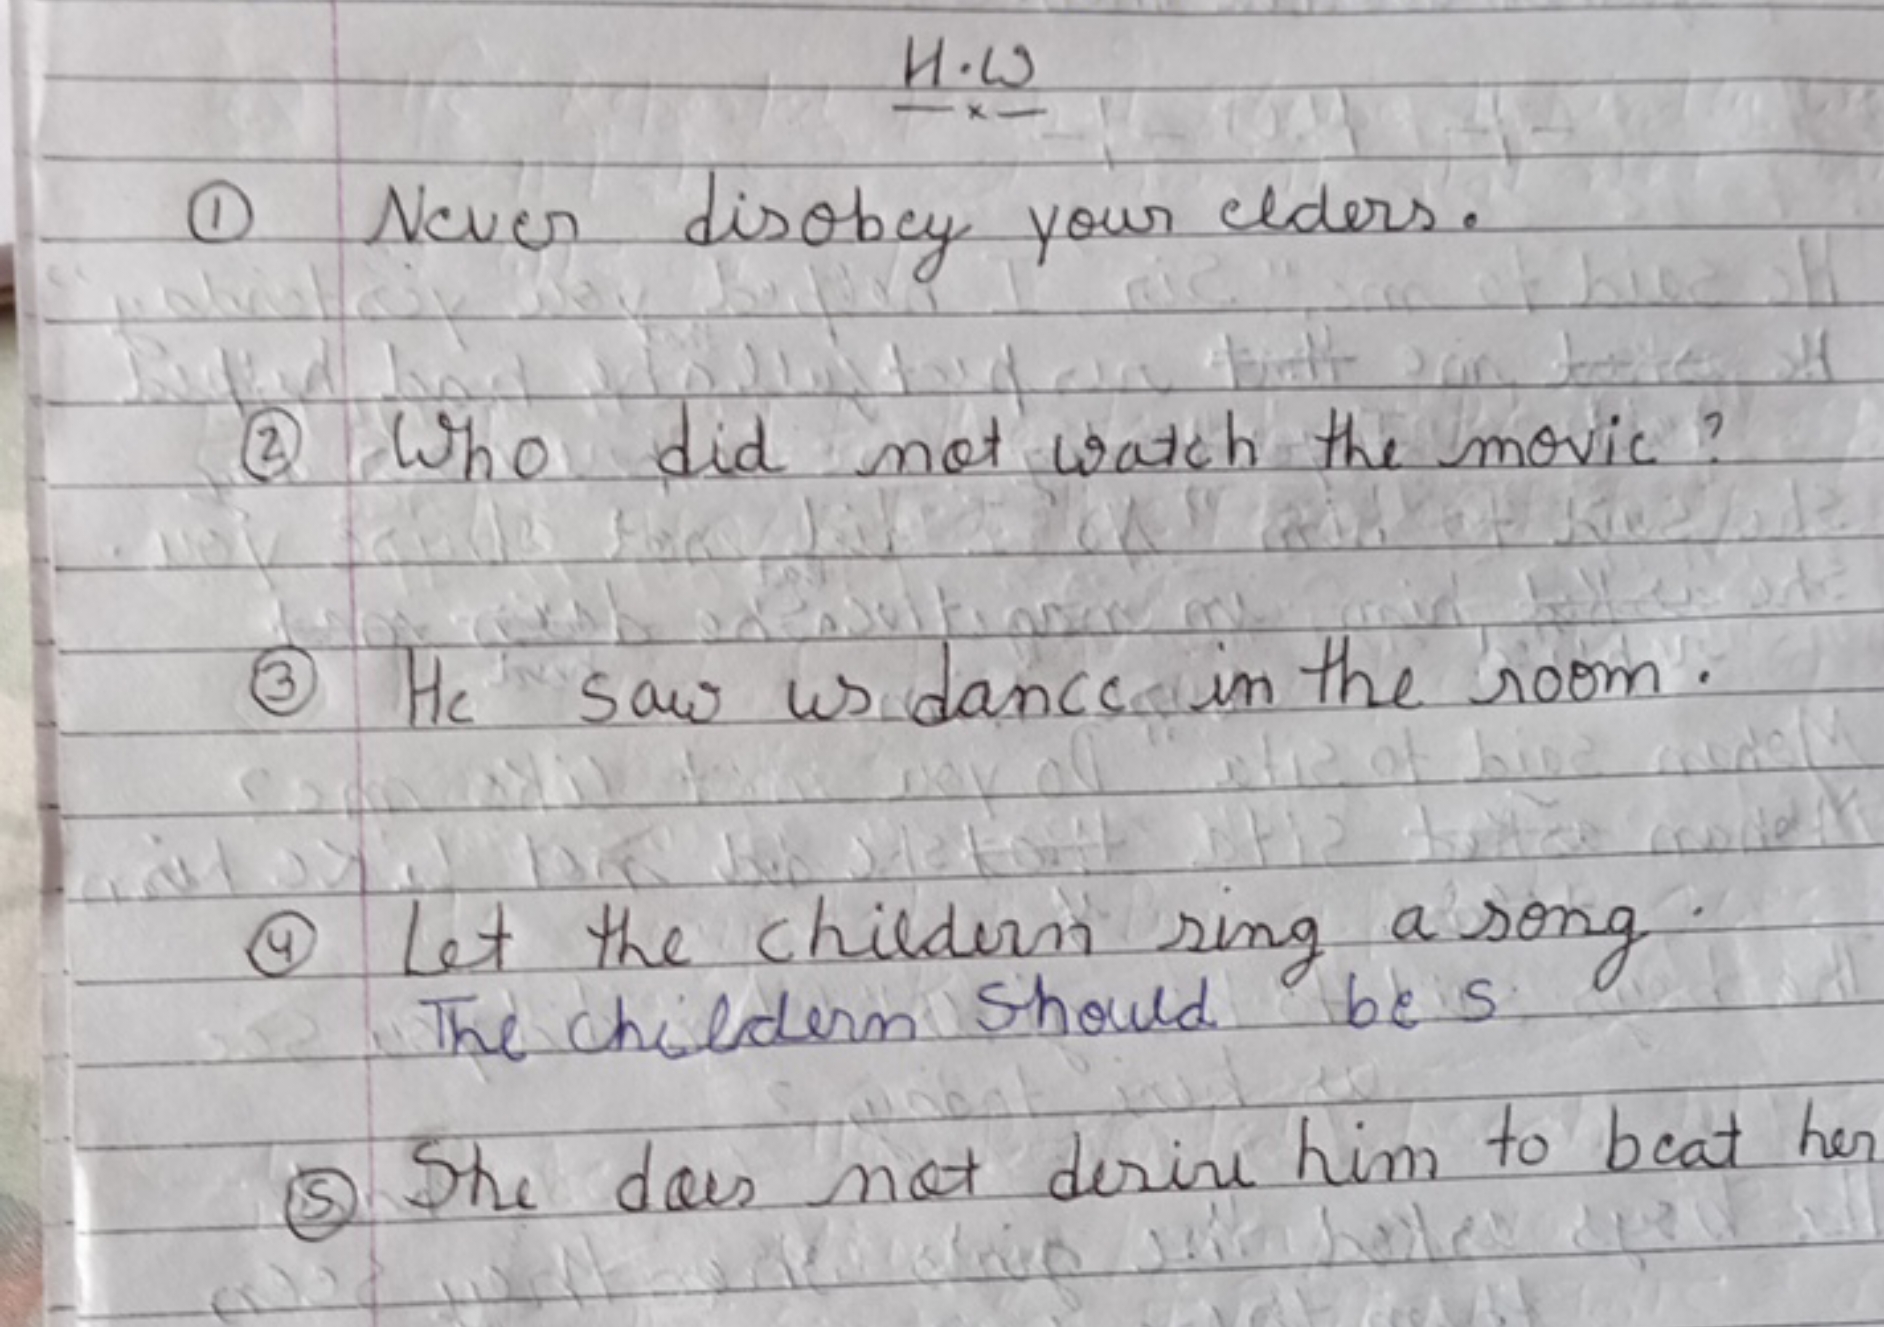 H.W
① Never disobey your elders.
② Who did not watch the movie?
③ He saw us dance in the room.
④ Let the childern sing a song.
The childern should be s
⑤ She does not desire him to beat her